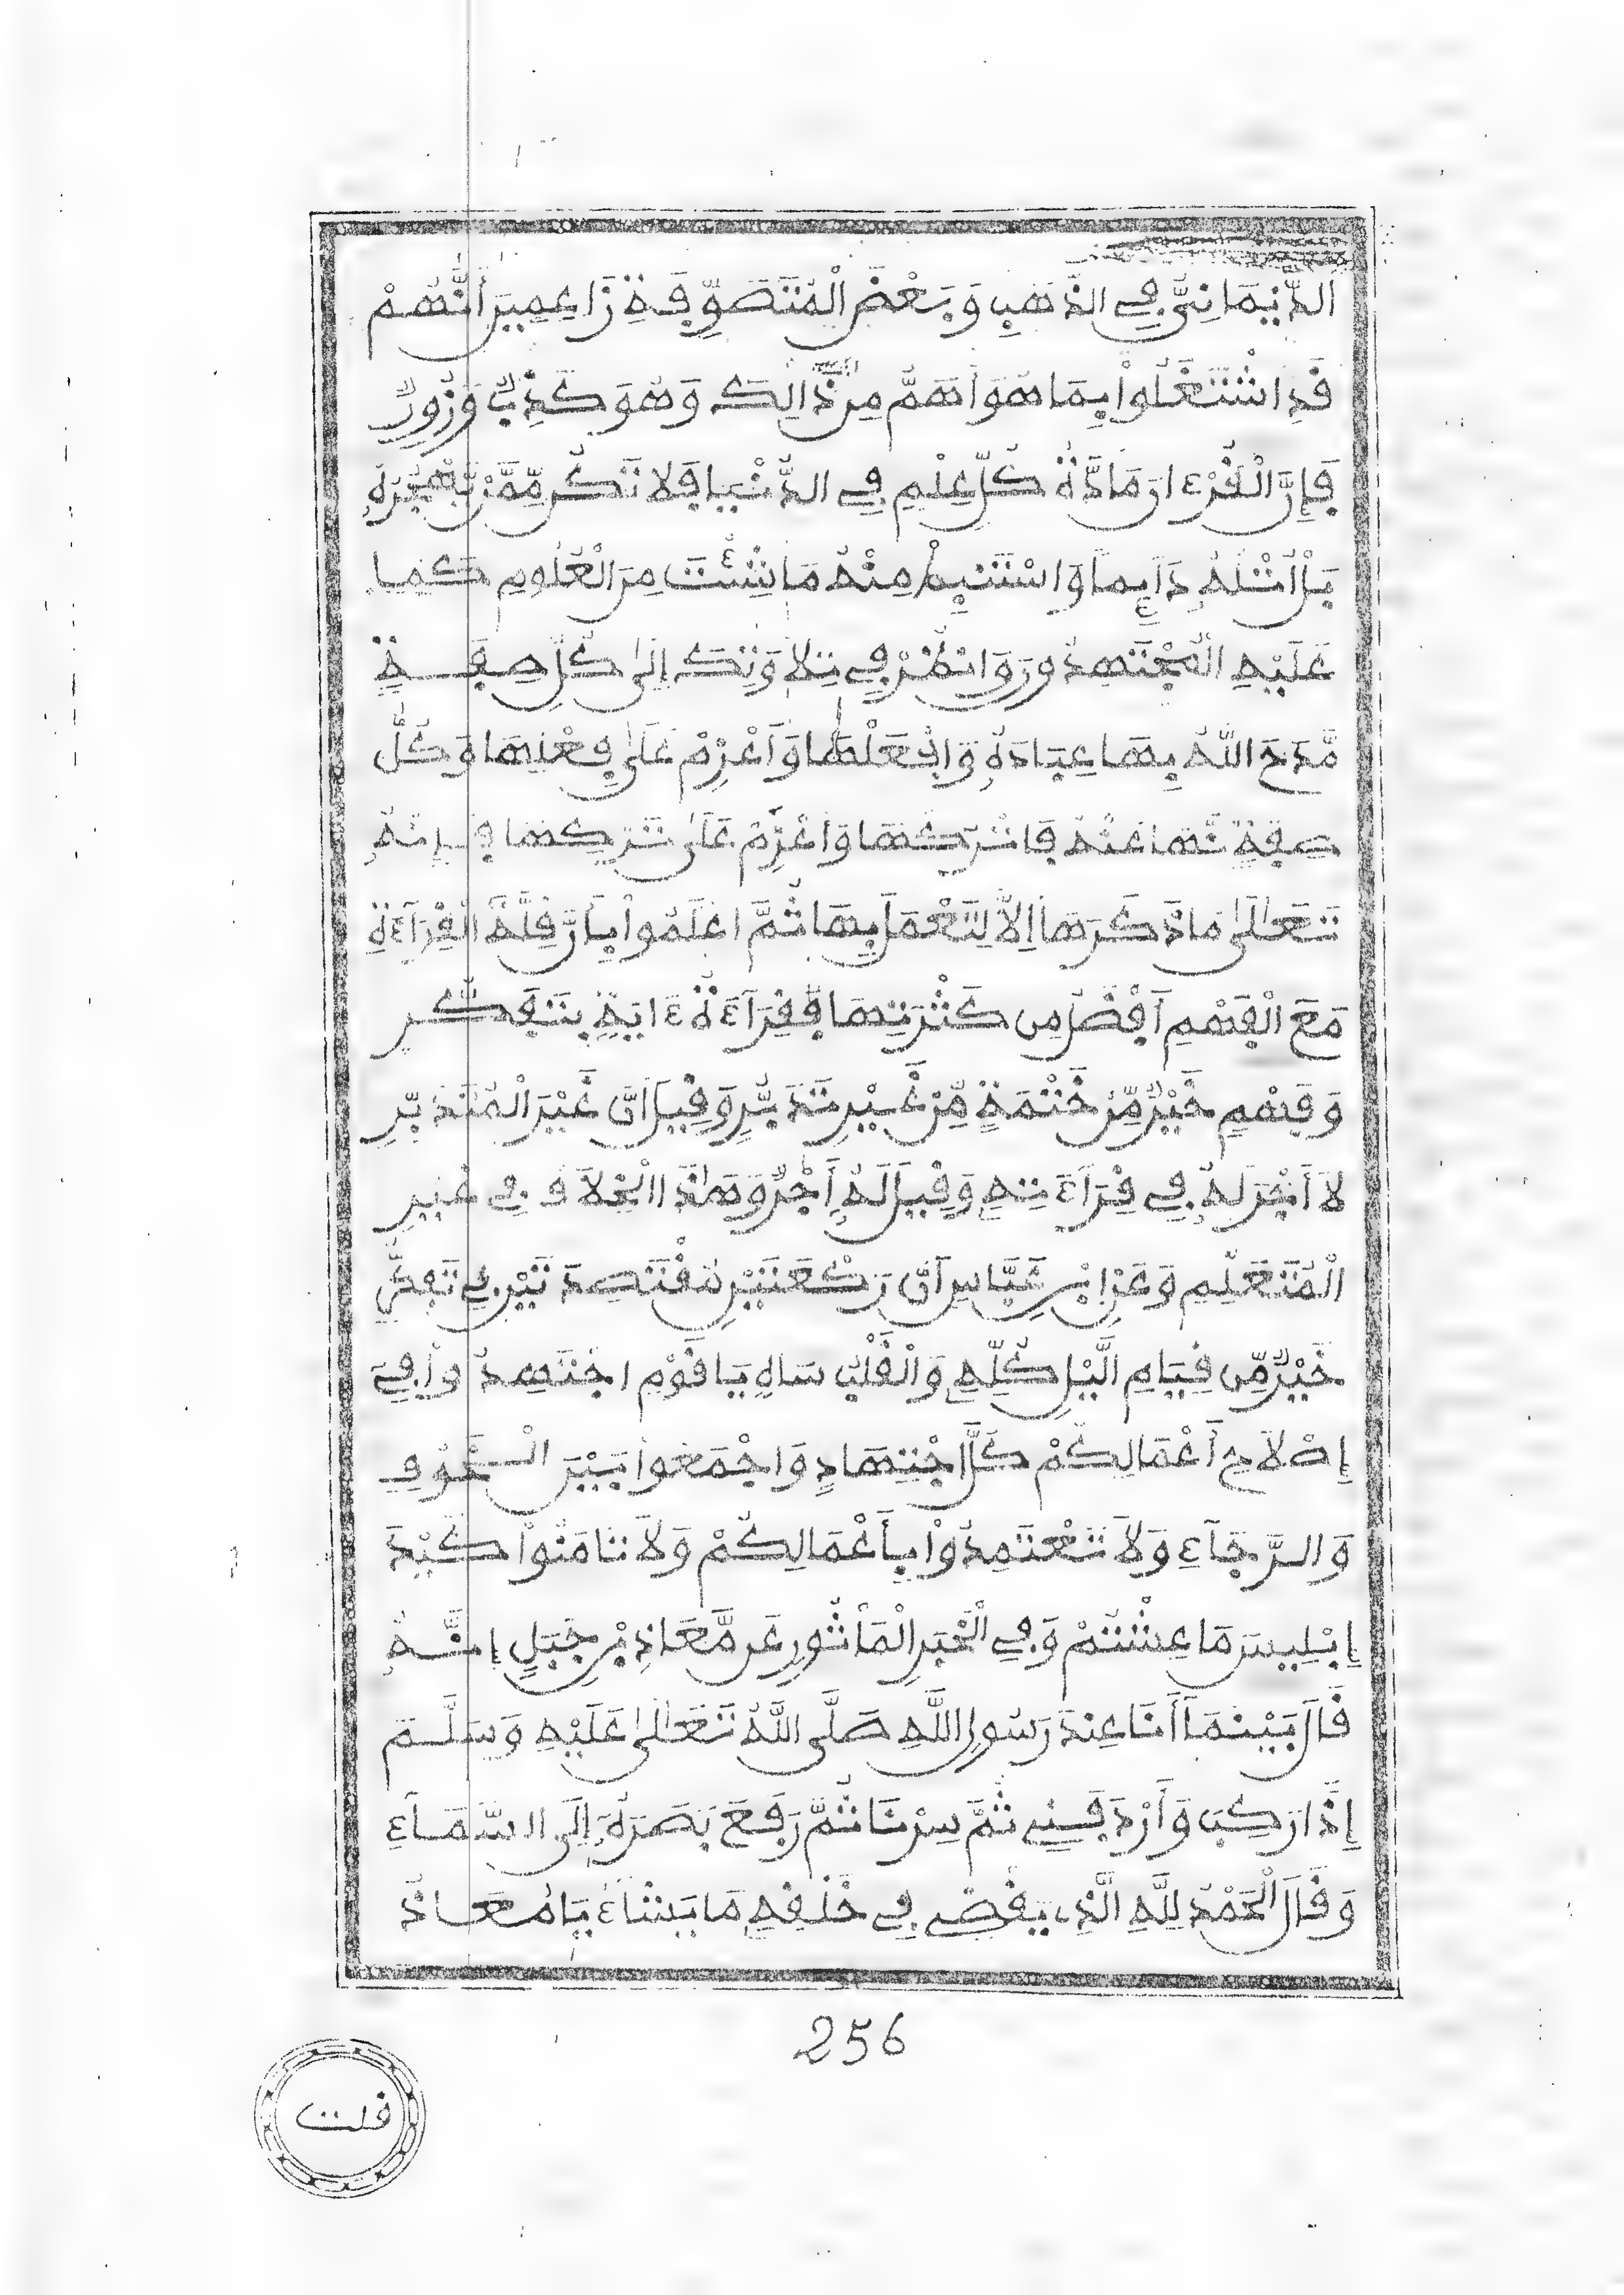 الدِّيمَانِيُّ فِي الذَّهَبِ وَبَعْضَ الْمُتَصَوِّفَةِ زَاعِمِينَ أَنَّهُمْ
قَدِ اشْتَغَلُواْ بِمَا هُوَ أَهَمُّ مِن ذَّالِكَ وَهُوَ كَذِبٌ وَزُورٌ
فَإِنَّ الْقُرْءَانَ مَادَّةُ كُلِّ عِلْمٍ فِي الدُّنْيَا فَلَا تَكُن مِّمَّنْ يَّهْجُرُهُ
بَلْ اُتْلُهُ دَآئِماً وَاسْتَنبِطْ مِنْهُ مَا شِئْتَ مِنَ الْعُلُومِ كَمَا
عَلَيْهِ الْمُجْتَهِدُونَ وَانظُرْ فِي تِلَاوَتِكَ إِلَىٰ كُلِّ صِفَةٍ
مَّدَحَ اللَّهُ بِهَا عِبَادَهُ وَافْعَلْهَا وَاَعْزِمْ عَلَىٰ فِعْلِهَا وَكُلُّ
صِفَةٍ نَّهَا عَنْهُ فَاتْرُكْهَا وَاعْزِمْ عَلَىٰ تَرْكِهَا فَإِنَّهُ
تَعَالَىٰ مَا ذَكَرَهَا إِلَّا لِتَعْمَلَ بِهَا ثُمَّ اعْلَمُواْ بِأَنَّ قِلَّةَ الْقِرَآءَةِ
مَعَ الْفَهْمِ أَفْضَلُ مِن كَثْرَتِهَا فَقِرَآءَةُ ءَايَةٍ بِتَفَكُّرٍ
وَفَهْمٍ خَيْرٌ مِّنْ خَتْمَةٍ مِّنْ غَيْرِ تَدَبُّرٍ وَقِيلَ إِنَّ غَيْرَ الْمُتَدَبِّرِ
لَا أَجْرَ لَهُ فِي قِرَآءَتِهِ وَقِيلَ لَهُ أَجْرٌ وَهَٰذَا الْخِلَافُ فِي غَيْرِ
الْمُتَعَلِّمِ وَعَنِ ابْنِ عَبَّاسٍ أَنَّ رَكْعَتَيْنِ مُقْتَصِدَتَيْنِ فِي تَفَكُّرٍ
خَيْرٌ مِّن قِيَامِ الَّيْلِ كُلِّهِ وَالْقَلْبُ سَاهٍ يَا قَوْمِ اجْتَهِدُواْ فِي
إِصْلَاحِ أَعْمَالِكُمْ كُلَّ اجْتِهَادٍ وَاجْمَعُواْ بَيْنَ الْخَوْفِ
وَالرَّجَآءِ وَلَا تَعْتَمِدُواْ بِأَعْمَالِكُمْ وَلَا تَامَنُواْ كَيْدَ
إِبْلِيسَ مَا عِشْتُمْ وَفِي الْخَبَرِ الْمَأْثُورِ عَن مُّعَاذِ بْنِ جَبَلٍ إِنَّهُ
قَالَ بَيْنَمَا أَنَا عِندَ رَسُولِ اللَّهِ صَلَّى اللَّهُ تَعَالَىٰ عَلَيْهِ وَسَلَّمَ
إِذَا رَكِبَ وَأَرْدَفَنِي ثُمَّ سِرْنَا ثُمَّ رَفَعَ بَصَرَهُ إِلَى السَّمَآءِ
وَقَالَ الْحَمْدُ لِلَّهِ الَّذِي يَقْضِي فِي خَلْقِهِ مَا يَشَآءُ يَا مُعَاذُ
256
قلت